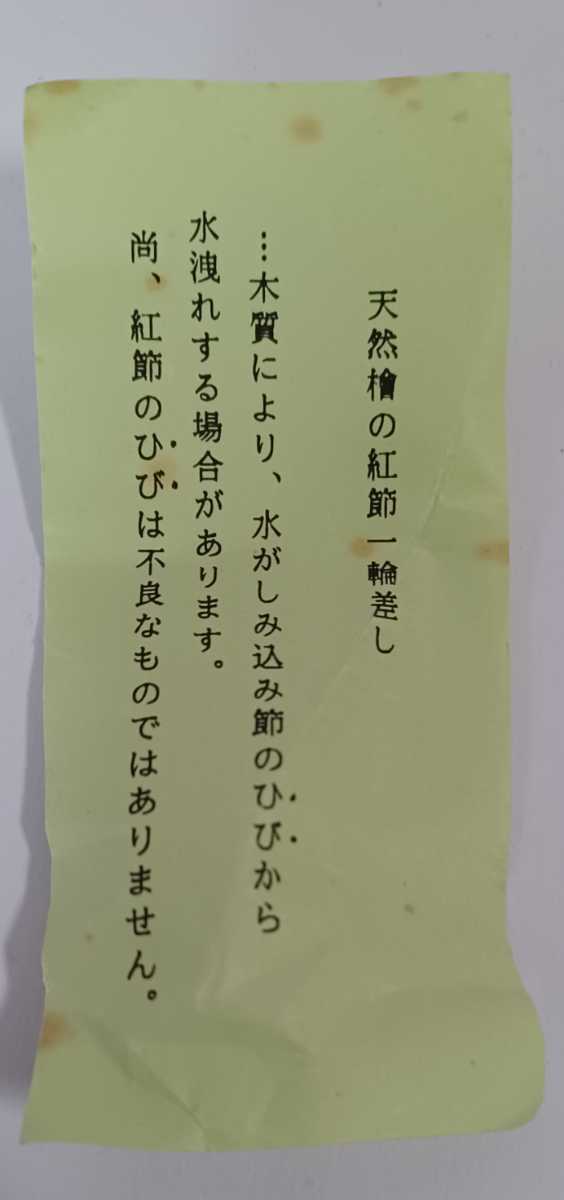 天然檜の紅節一輪差し
…木質により、水がしみ込み節のひびから
水洩れする場合があります。
尚、紅節のひびは不良なものではありません。